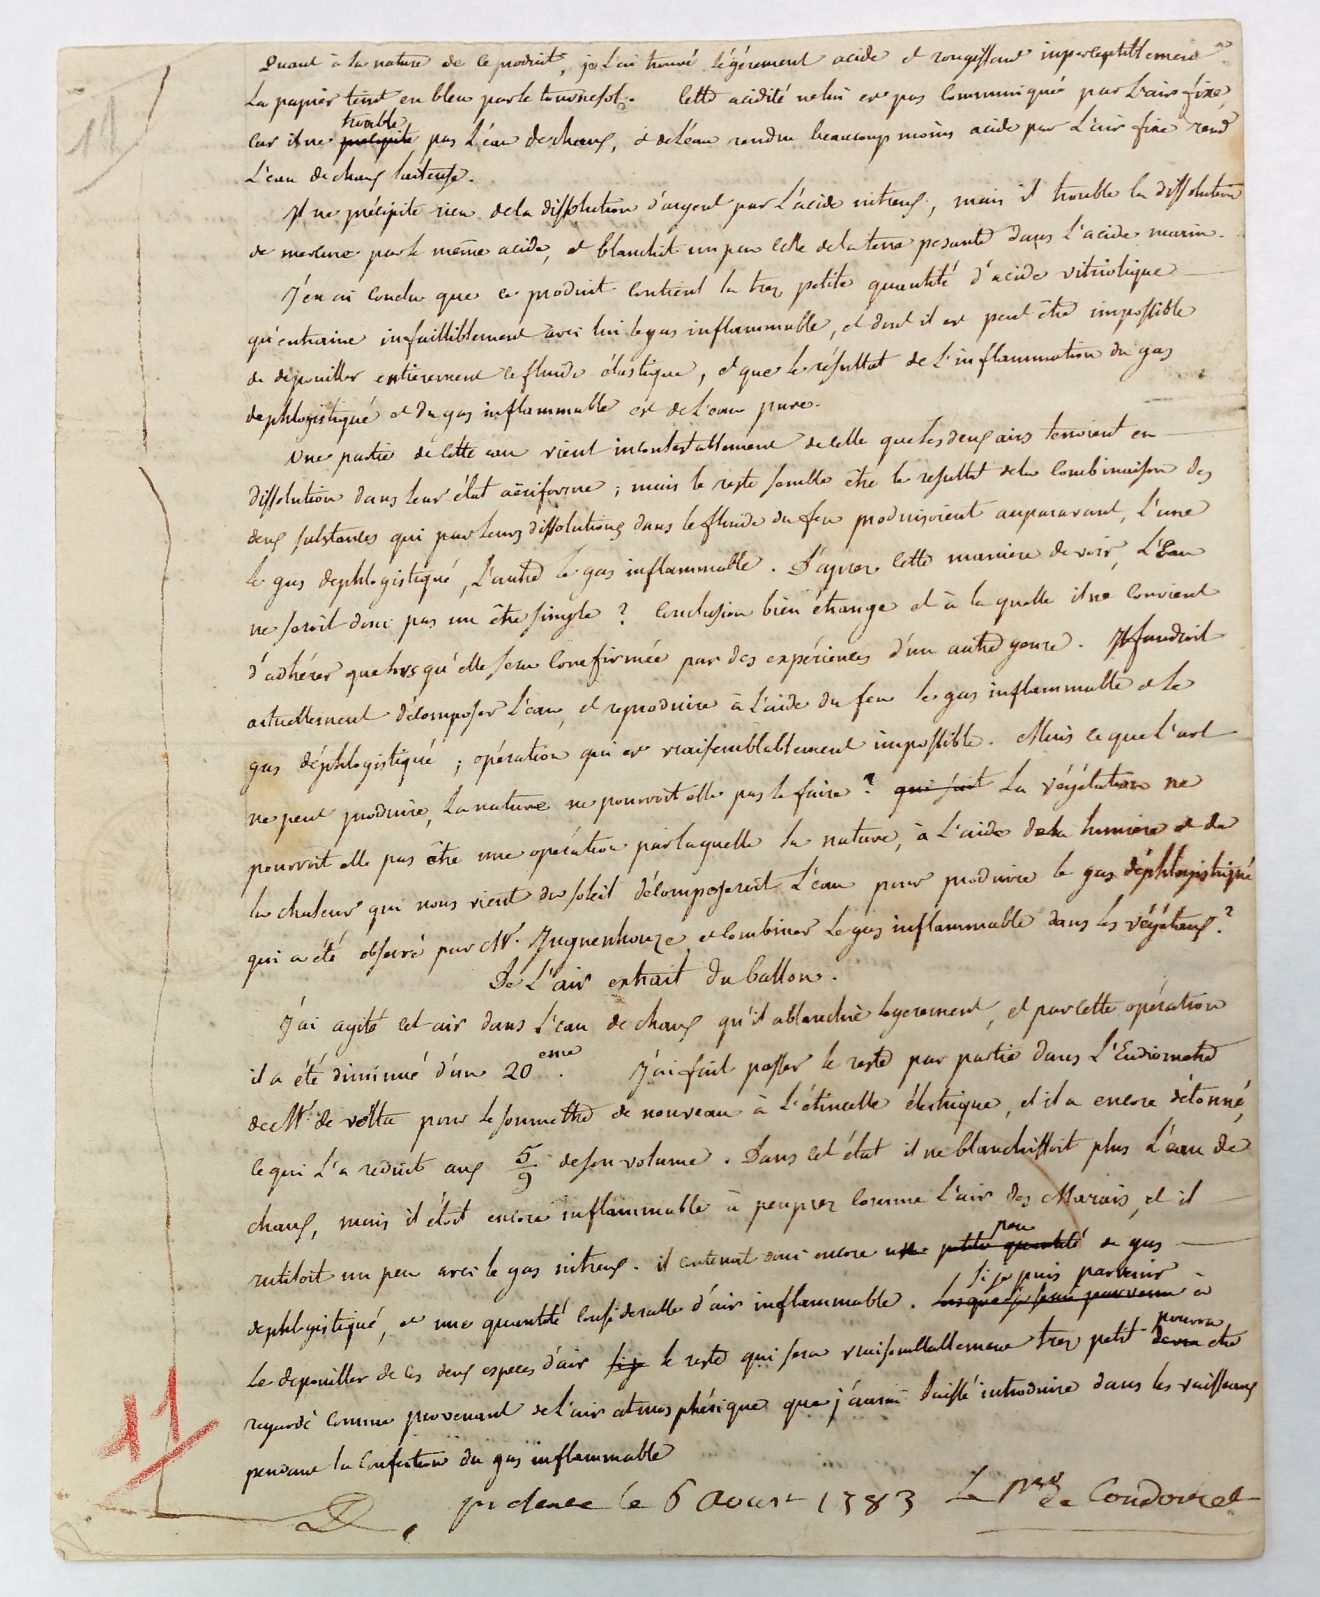 11
Quant à la nature de ce produit, je l'ai trouvé légèrement acide et rougissant imperceptiblement
le papier teint en bleu par le tournesol. Cette acidité ne lui est pas communiquée par l'air fixe,
trouble
car il ne précipite pas l'eau de chaux, et de l'eau rendue beaucoup moins acide par l'air fixe rend
l'eau de chaux laiteuse.
Il ne précipite rien de la dissolution d'argent par l'acide nitreux, mais il trouble la dissolution
de mercure par le même acide, et blanchit un peu celle de la terre pesante dans l'acide marin.
J'en ai conclu que ce produit contient la trez petite quantité d'acide vitriolique
qu'entraine infailliblement avec lui le gas inflammable, et dont il est peut être impossible
de dépouiller entierement ce fluide élastique, et que le résultat de l'inflammation du gas
dephlogistiqué et du gas inflammable est de l'eau pure.
Une partie de cette eau vient incontestablement de celle que les deux airs tenoient en
dissolution dans leur état aëriforme ; mais le reste semble être le resultat de la combinaison des
deux substances qui par leurs dissolutions dans le fluide du feu produisoient auparavant, l'une
le gas dephlogistiqué, l'autre le gas inflammable. D'aprez cette maniere de voir, L'Eau
ne seroit donc pas un être simple ? Conclusion bien étrange et à la quelle il ne convient
d'adhérer que lorsqu'elle sera confirmée par des expériences d'un autre genre. Il faudroit
actuellement décomposer l'eau, et reproduire à l'aide du feu le gas inflammable et le
gas déphlogistiqué ; opération qui est vraisemblablement impossible. Mais ce que l'art
ne peut produire, la nature ne pourroit elle pas le faire ? qui sait La végétation ne
pourroit elle pas être une opération par laquelle la nature, à l'aide de la lumiere et de
la chaleur qui nous vient du soleil décomposeroit l'eau pour produire le gas déphlogistiqué
qui a été observé par Mr. Ingnenhouze, et combiner le gas inflammable dans les végétaux ?
De L'air extrait du ballon.
J'ai agité cet air dans l'eau de chaux qu'il a blanchie legerement, et par cette opération
il a été diminué d'un 20eme. J'ai fait passer le reste par partie dans l'Eudiometre
de Mr. de volta pour le soumettre de nouveau à l'étincelle électrique, et il a encore détonné,
ce qui l'a reduit aux 5/9 de son volume. Dans cet état il ne blanchissoit plus l'eau de
chaux, mais il étoit encore inflammable à peu prez comme l'air des Marais, et il
peu
rutiloit un peu avec le gas nitreux. il contenoit donc encore une petite quantité de gas
si je puis parvenir
dephlogistiqué, et une quantité considerable d'air inflammable. Lorsque je serai parvenu à
pourra
le depouiller de ces deux especes d'air si je le reste qui sera vraisemblablement trez petit devra etre
regardé comme provenant de l'air atmosphérique que j'aurai laissé introduire dans les vaisseaux
pendant la confection du gas inflammable
11
le 6 aoust 1783 Le Mis de Condorcet